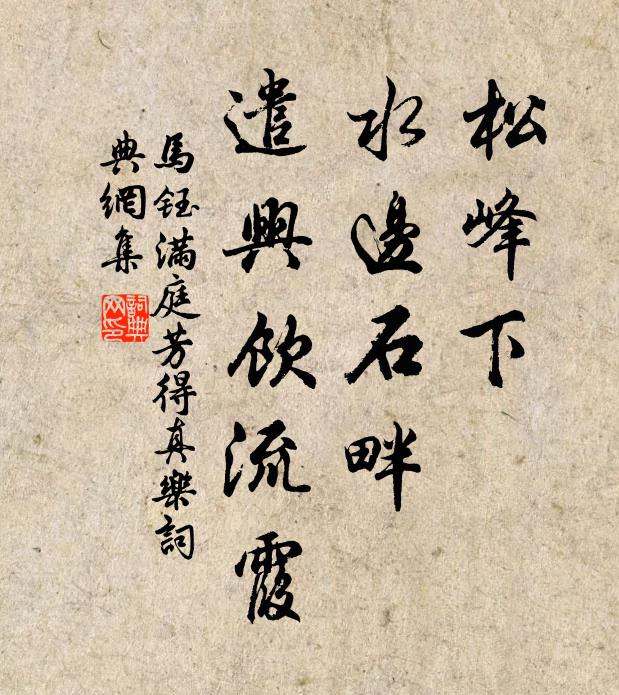 松峰下
水邊石畔
遣興飲流霞
馬鈺滿庭芳得真樂詞
典網集
詞典
网印